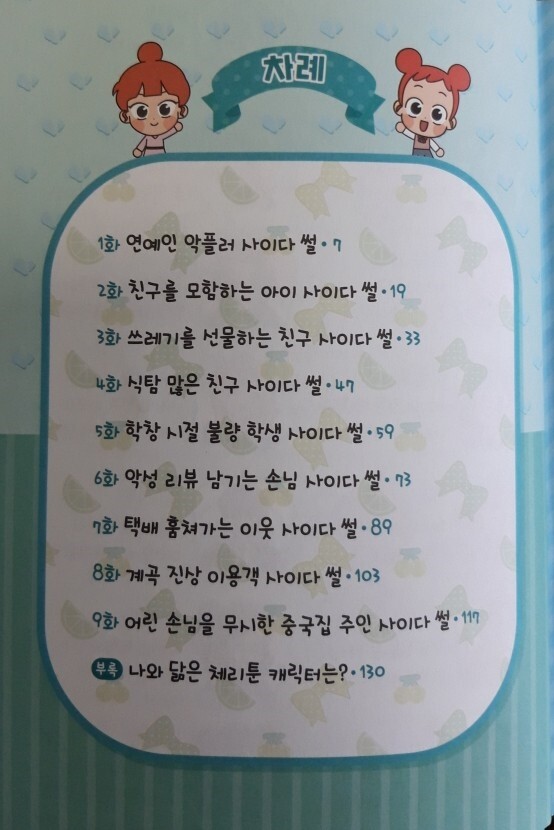 차례
1화 연예인 악플러 사이다 썰 • 7
2화 친구를 모함하는 아이 사이다 썰 • 19
3화 쓰레기를 선물하는 친구 사이다 썰 • 33
4화 식탐 많은 친구 사이다 썰 • 47
5화 학창 시절 불량 학생 사이다 썰 • 59
6화 악성 리뷰 남기는 손님 사이다 썰 • 73
7화 택배 훔쳐가는 이웃 사이다 썰 • 89
8화 계곡 진상 이용객 사이다 썰 • 103
9화 어린 손님을 무시한 중국집 주인 사이다 썰 • 117
부록 나와 닮은 체리툰 캐릭터는? • 130